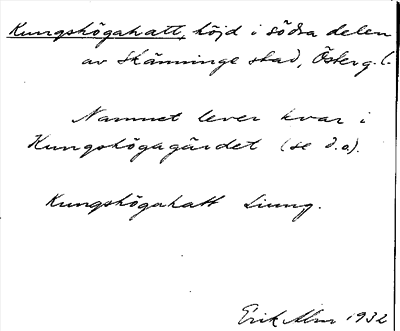 Kungshögahatt, höjd i södra delen
av Skänninge stad, Österg. l.
Namnet lever kvar i
Kungshögagärdet (se d.o).
Kungshögahatt Liung.
Erik Alm 1932